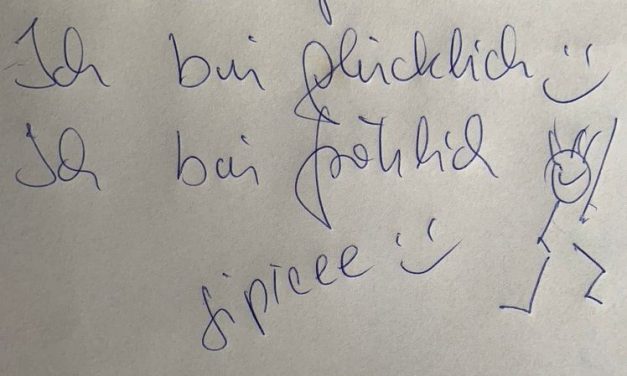 Ich bin glücklich
Ich bin fröhlich
jipieee